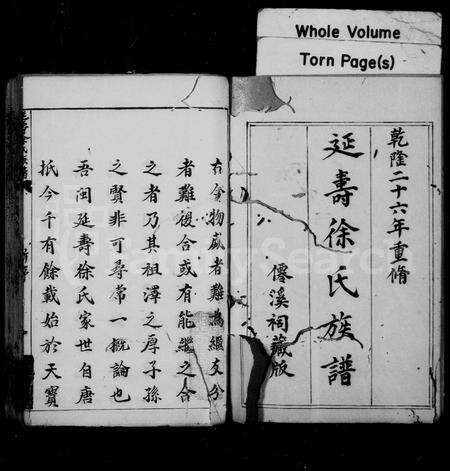 Whole Volume
Torn Page(s)
乾隆二十六年重脩
延壽徐氏族譜
僊溪祠藏版
在昔物盛者難為繼支分
者難復合或有能繼之合
之者乃其祖澤之厚子孫
之賢非可尋常一概論也
吾閩延壽徐氏家世自唐
抵今千有餘載始於天寶